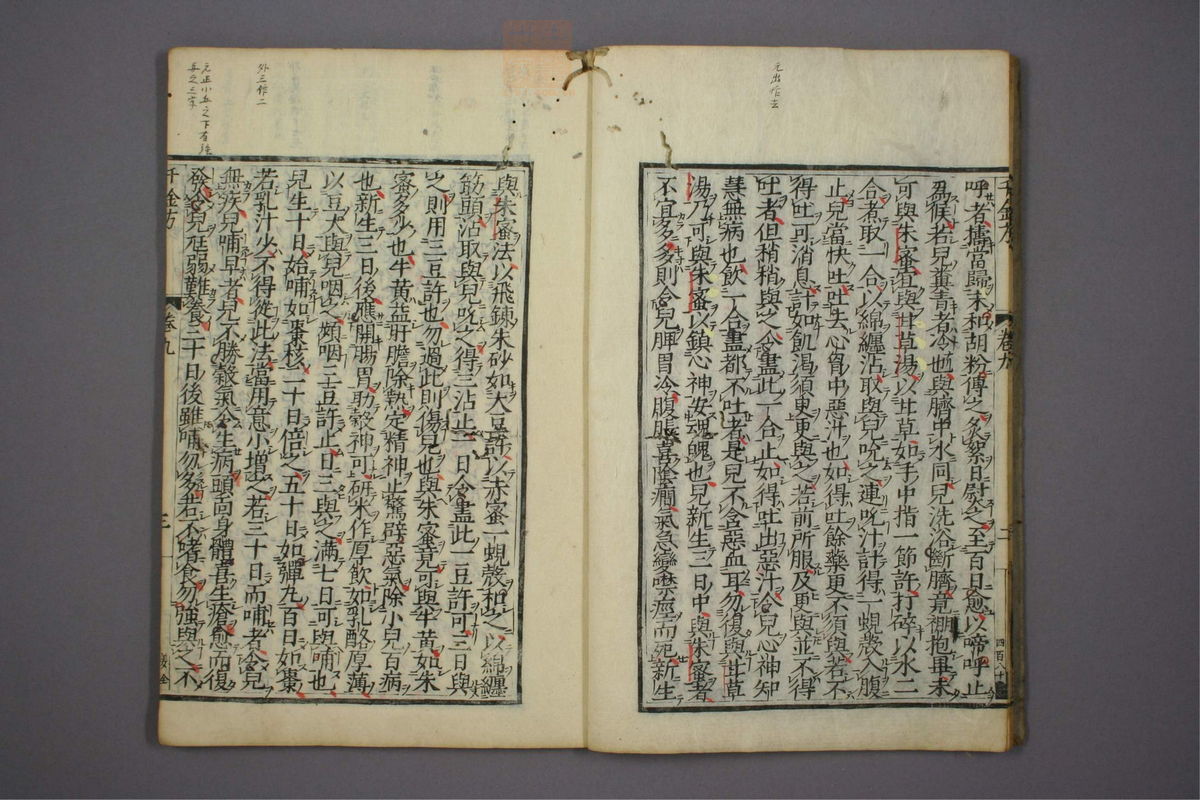 元出作去
千金方
卷九
二
四百八十
呼者擣當歸末和胡粉傅之灸絮日熨之至百日愈以啼呼止
爲候若兒糞青者冷也與臍中水同兒洗浴斷臍竟襁抱畢未
可與朱蜜宜與甘草湯以甘草如手中指一節許打碎以水二
合煮取一合以綿纏沾取與兒吮之連吮汁計得一蜆殼入腹
止兒當快吐吐去心胷中惡汁也如得吐餘藥更不須與若不
得吐可消息計如飢渴須更更與之若前所服及更與並不得
吐者但稍稍與之令盡此一合止如得吐出惡汁令兒心神知
慧無病也飲一合盡都不吐者是兒不含惡血耳勿復與甘草
湯乃可與朱蜜以鎮心神安魂魄也兒新生三日中與朱蜜者
不宜多多則令兒脾胃冷腹脹喜陰癎氣急變噤痙而死新生
外三作二
與朱蜜法以飛鍊朱砂如大豆許以赤蜜一蜆殼和之以綿纏
筯頭沾取與兒吮之得三沾止一日令盡此一豆許可三日與
之則用三豆許也勿過此則傷兒也與朱蜜竟可與牛黃如朱
蜜多少也牛黃益肝膽除熱定精神止驚辟惡氣除小兒百病
也新生三日後應開腸胃助穀神可研米作厚飲如乳酪厚薄
以豆大與兒咽之頻咽三豆許止日三與之滿七日可與哺也
兒生十日始哺如棗核二十日倍之五十日如彈丸百日如棗
若乳汁少不得從此法當用意小增之若三十日而哺者令兒
無疾兒哺早者兒不勝穀氣令生病頭面身體喜生瘡愈而復
發令兒尪弱難養三十日後雖哺勿多若不嗜食勿強與之不
千金方
卷九
三